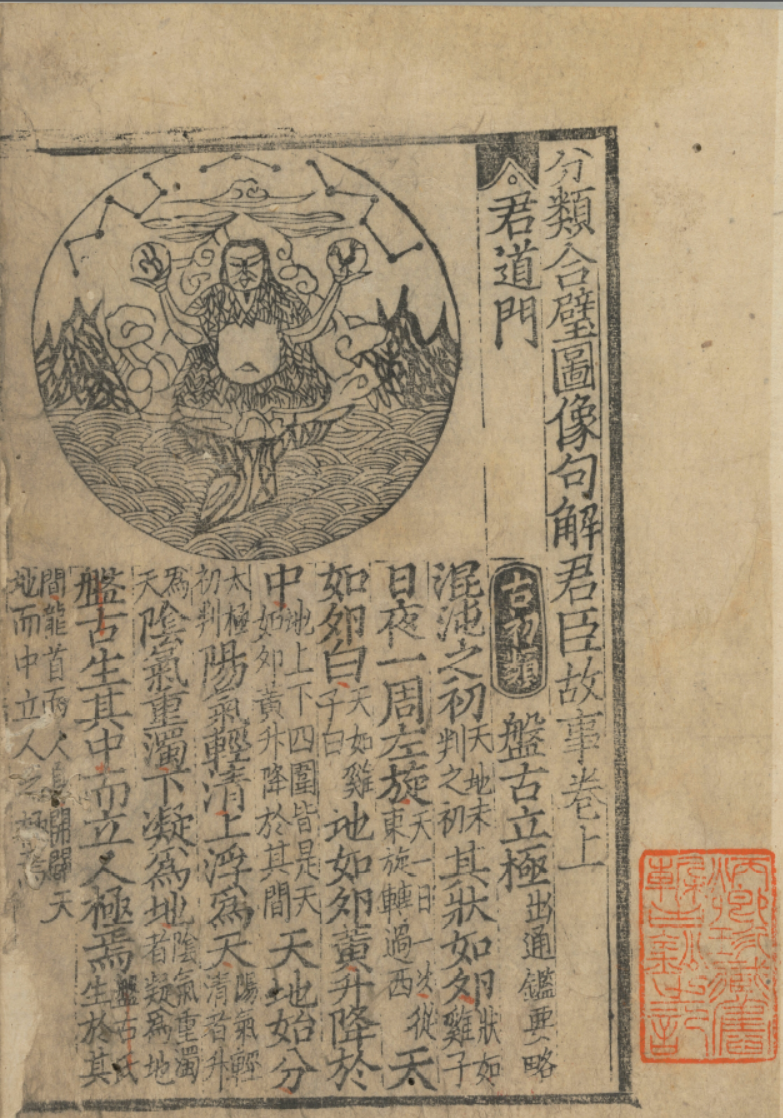 分類合璧圖像句解君臣故事卷上
君道門
古初類
盤古立極出通鑑要略
混沌之初天地未判之初其狀如夘狀如雞子
日夜一周左旋天一日一次從東旋轉過西天
如夘白天如雞子白地如夘黃升降於
中地上下四圍皆是天如夘黃升降於其間天地始分
太極初判陽氣輕清上浮爲天陽氣輕清者升
爲天陰氣重濁下凝爲地陰氣重濁者凝爲地
盤古生其中而立人極焉盤古氏生於其
間龍首而人身開闢天地而中立人之極焉